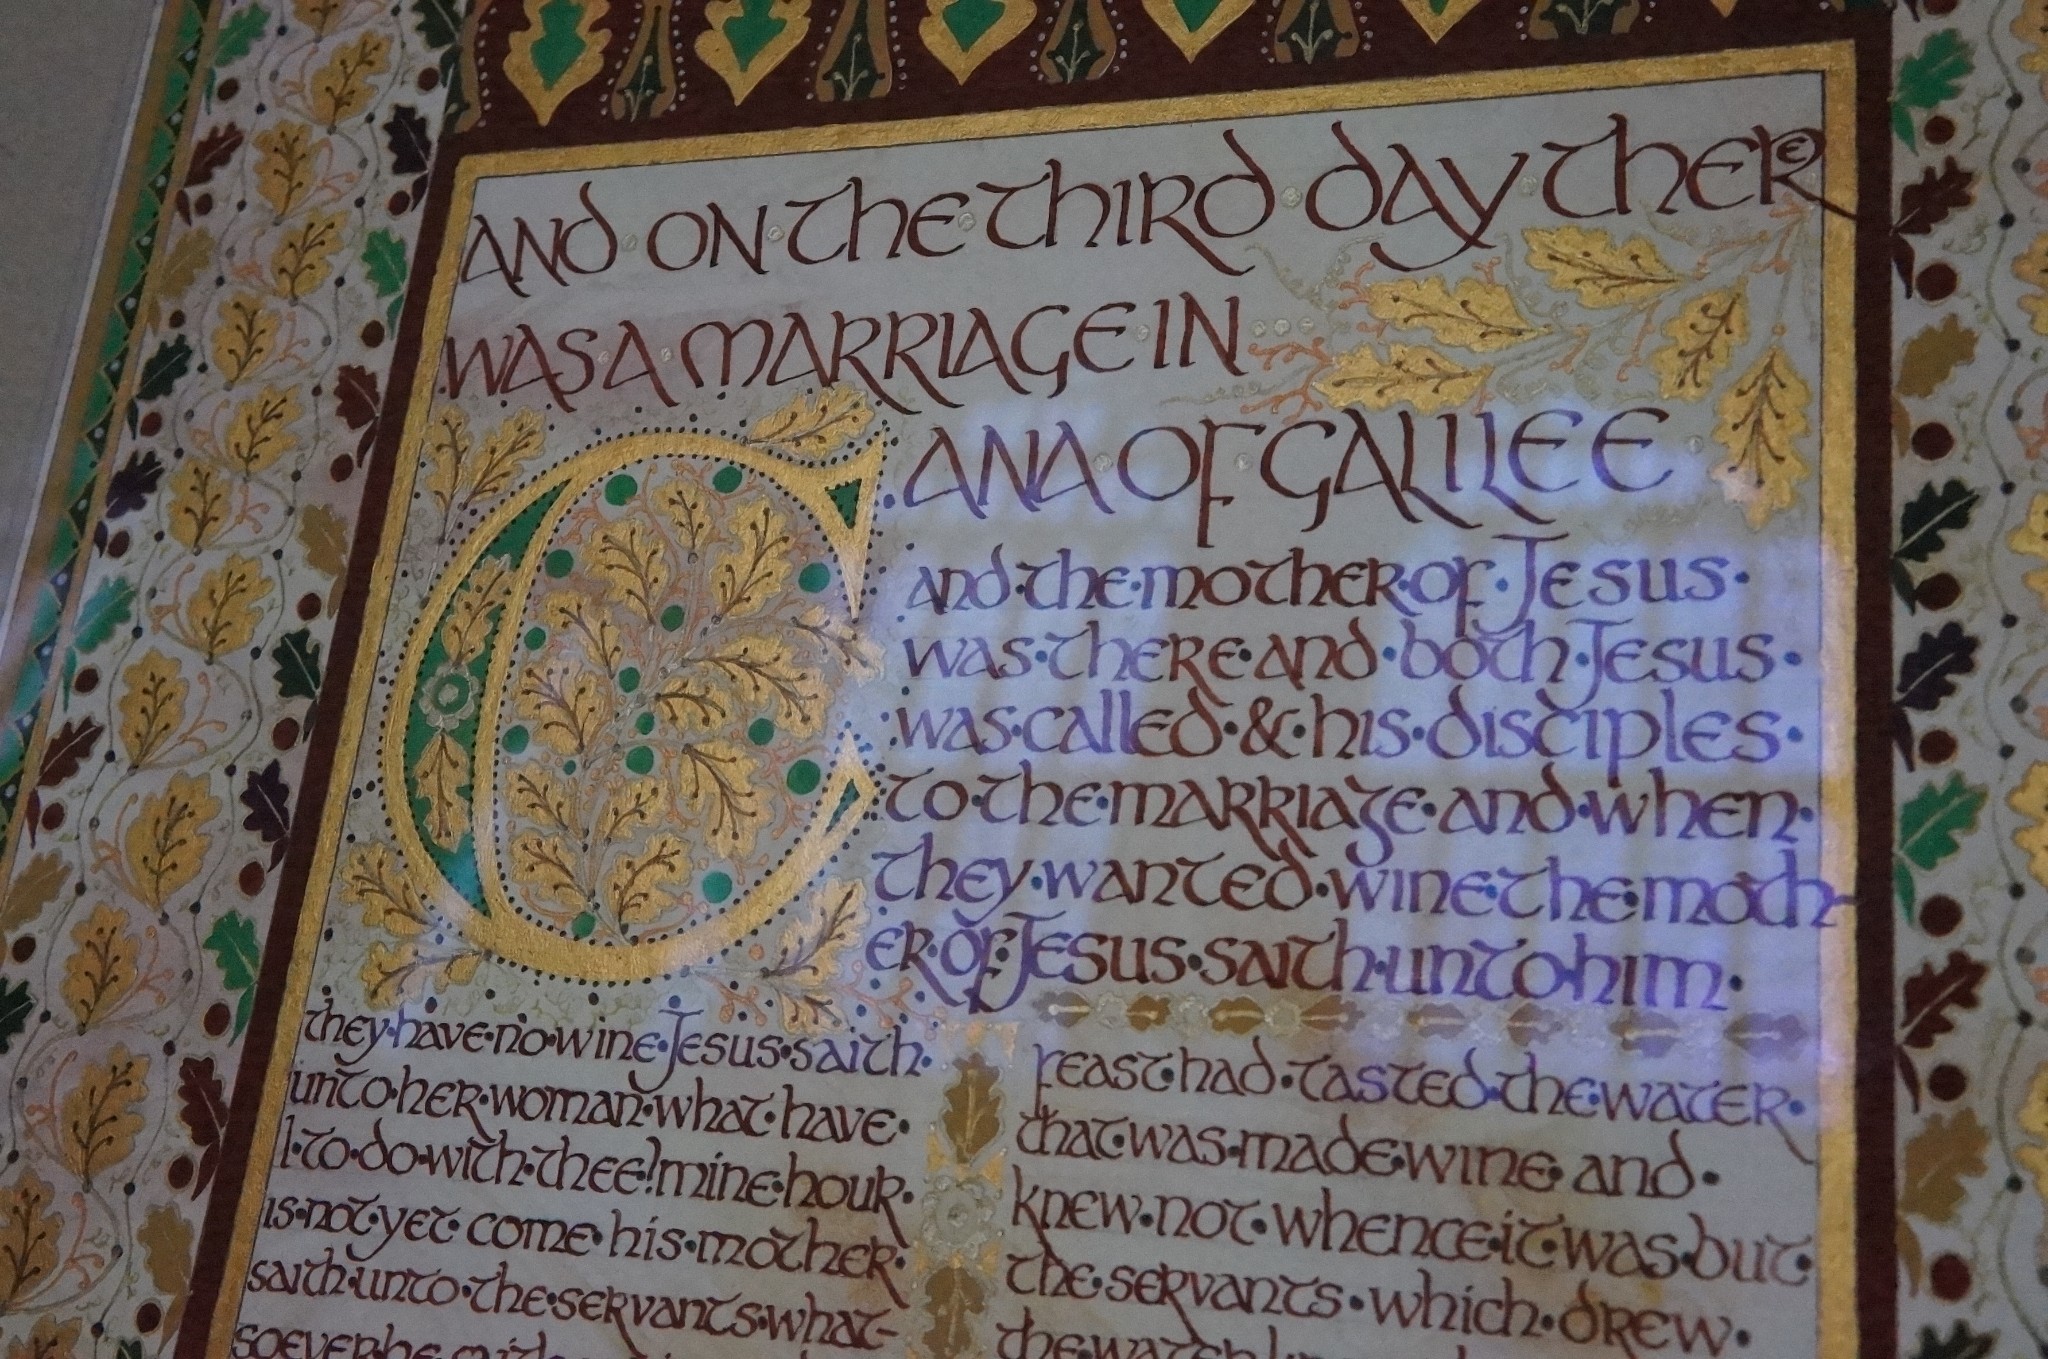 AND ON THE THIRD DAY THERE
WAS A MARRIAGE IN
CANA OF GALILEE
and·the·mother·of·Jesus·
was·there·and·both·Jesus·
was·called·&·his·disciples·
to·the·marriage·and·when·
they·wanted·wine·the·moth-
er·of·Jesus·saith·unto·him·
they·have·no·wine·Jesus·saith·
unto·her·woman·what·have·
I·to·do·with·thee!mine·hour·
is·not·yet·come·his·mother·
saith·unto·the·servants·what-
soever·he
feast·had·tasted·the·water·
that·was·made·wine·and·
knew·not·whence·it·was·but·
the·servants·which·drew·
the·water